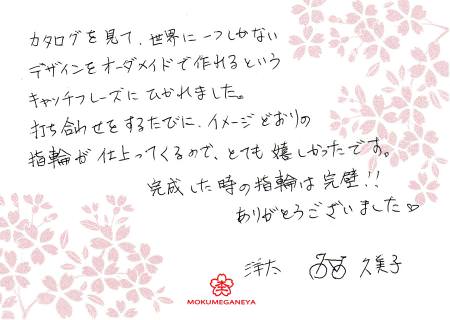 カタログを見て、世界に一つしかない
デザインをオーダメイドで作れるという
キャッチフレーズにひかれました。
打ち合わせをするたびに、イメージどおりの
指輪が仕上ってくるので、とても嬉しかったです。
完成した時の指輪は完璧!!
ありがとうございました♡
洋太 久美子
MOKUMEGANEYA